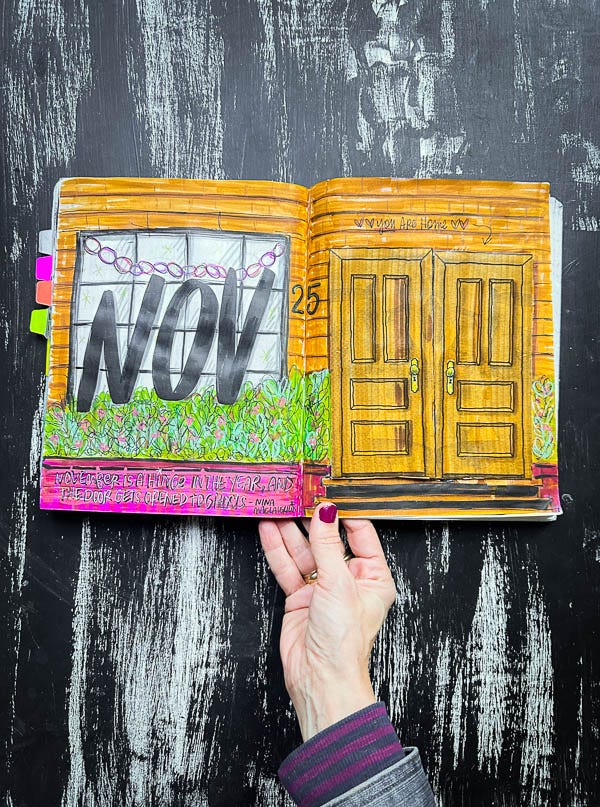 NOV
NOVEMBER IS A HINGE IN THE YEAR, AND
THE DOOR GETS OPENED TO GHOSTS - NINA
MACLAUGHLIN
25
You Are Home